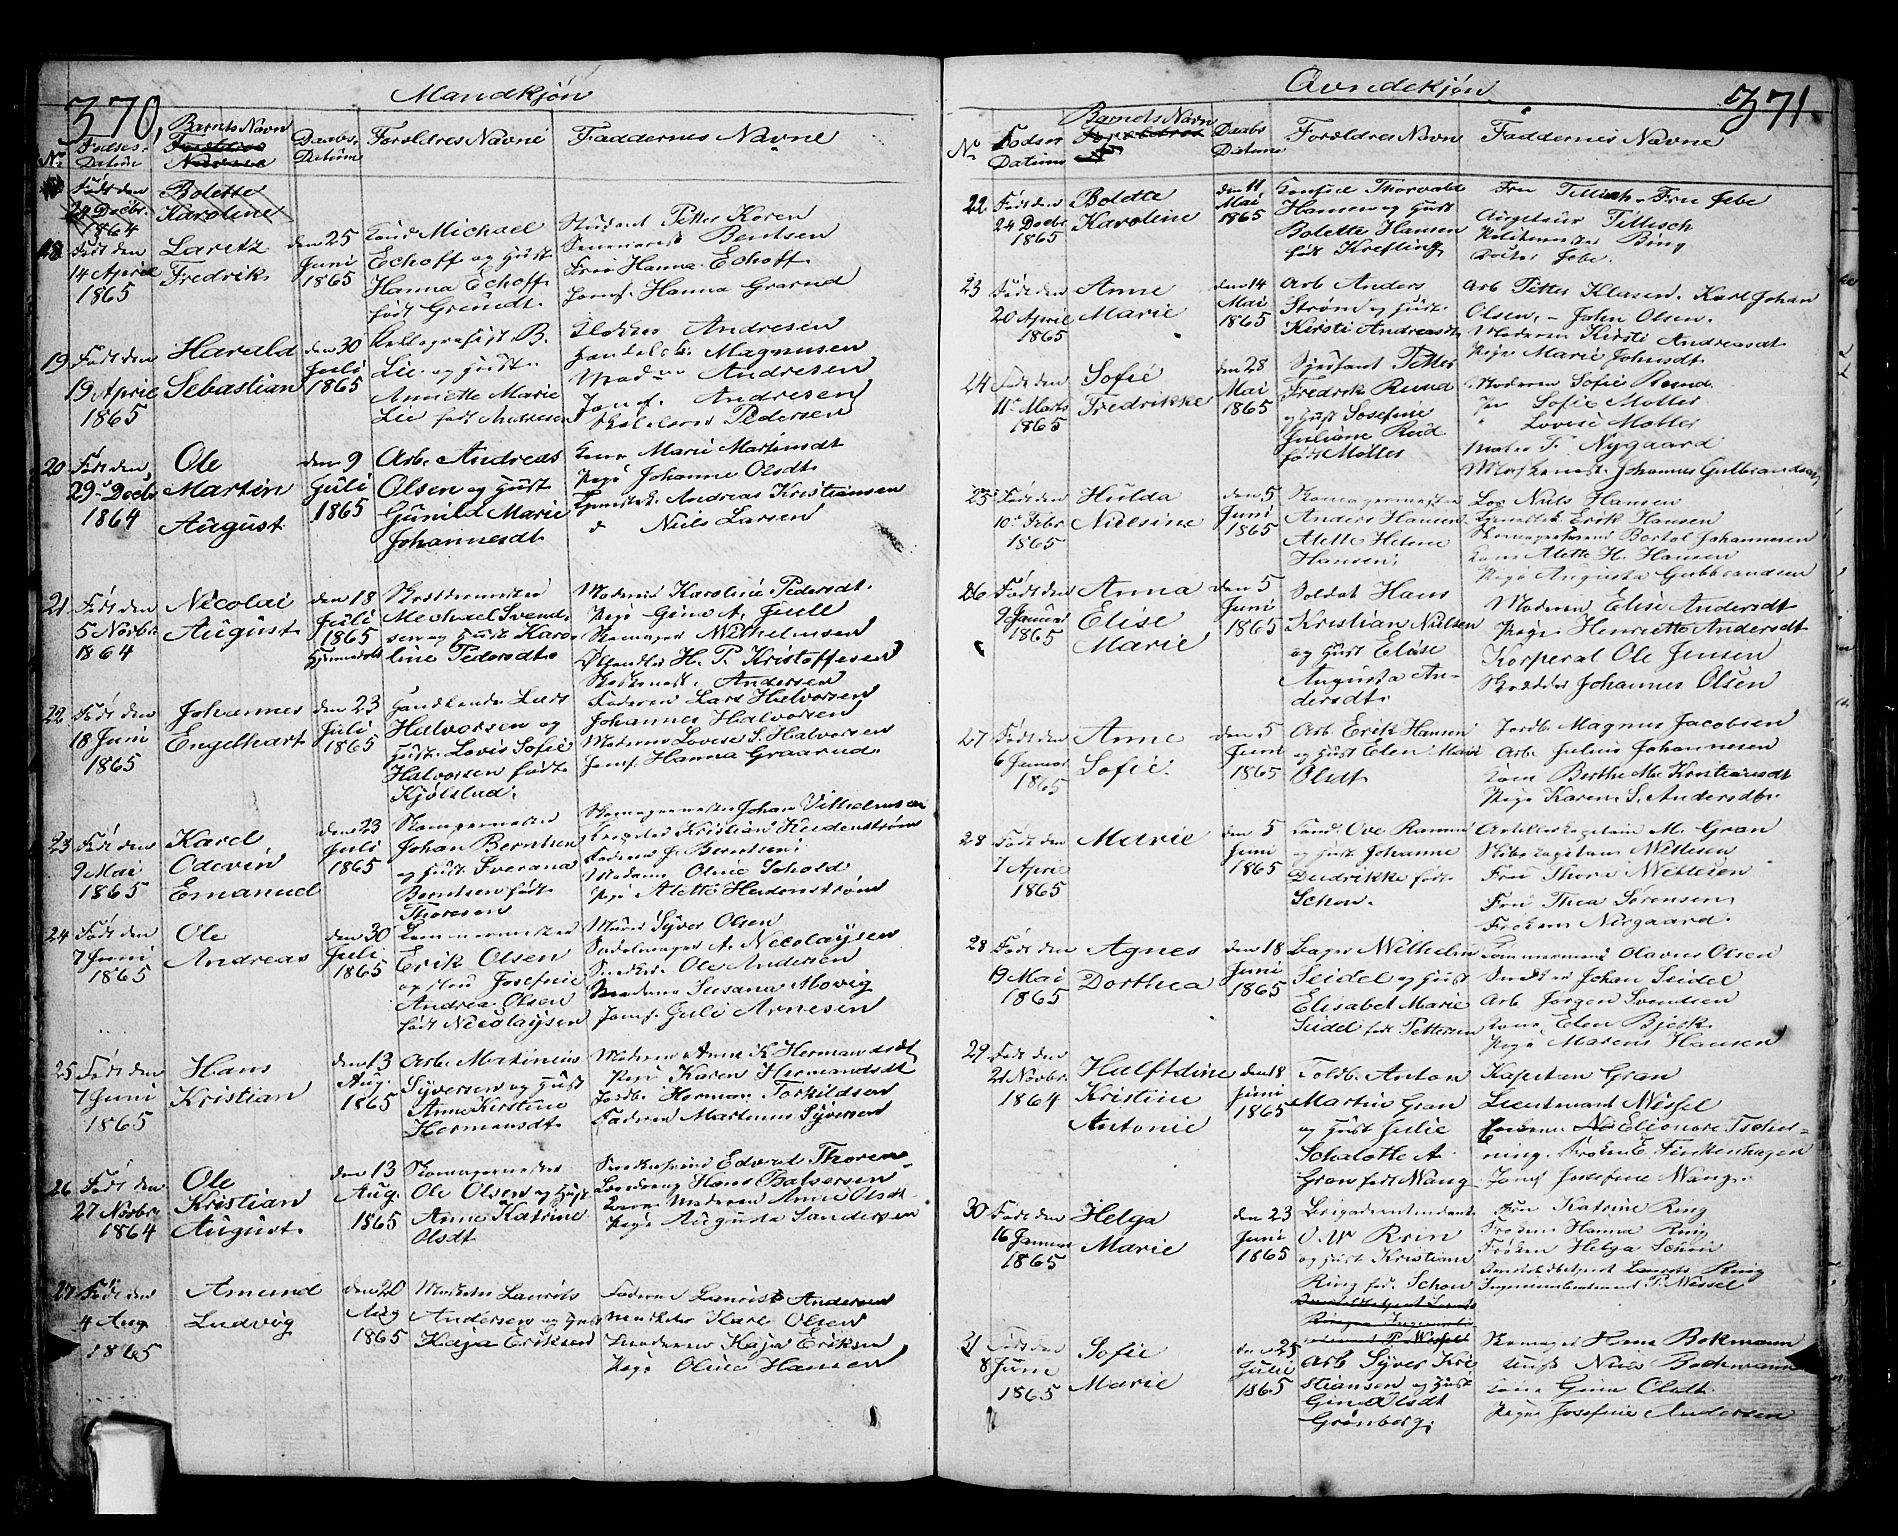 370,
Mandkjøn
No
Fødses-
Datum
Barnets Navn
Daabs-
Datum
Forældres Navne
Faddernes Navne
Født den
24 Decbr.
1864
Bolette
Karoline
18
Født den
14 April
1865
Laretz
Fredrik
den 25
Juni
1865
Michael
Echoff og Hust
Hanna Echoff
født Grundt.
Student Petter Koren
Bentsen
Hanna Echoff
Jomf. Hanna Grarud
19
Født den
19 April
1865
Harald
Sebastian
den 30
Juli
1865
B.
Lie og Hust.
Annette Marie
Lie født Andresen
Andresen
Magnusen
Andresen
Jomf. Andresen
Pedersen
20
Født den
29 Decbr
1864
Ole
Martin
August
den 9
Juli
1865
Arb. Andreas
Olsen og Hust
Gunild Marie
Johannesdt
Kone Marie Martinsdt
Pige Johanne Olsdt
Andreas Kristiansen
Niels Larsen
21
Født den
5 Novbr.
1864
Nicolai
August
den 18
Juli
1865
Hjemmedøbt
Skreddermester
Michael Svend-
sen og Hust Karo-
line Pedersdt.
Moderen Karoline Pedersdt.
Pige Gina A. Juell
Skomager Wilhelmsen
H. P. Kristoffesen
Andersen
22
Født den
18 Juni
1865
Johannes
Engelhart
den 23
Juli
1865
Handlende Lars
Halvorsen og
Hust. Lovis Sofie
Halvorsen født
Kjølstad.
Faderen Lars Halvorsen
Johannes Halvorsen
Moderen Lovise S. Halvorsen
Jomf. Hanna Graarud.
23
Født den
9 Mai
1865
Karl
Odevin
Emanuel
den 23
Juli
1865
Skomagermester
Johan Berntsen
og Hust Sverana
Berntsen født
Thoresen
Skomagermester Johan Vilhelmsen
Kristian Heidenstrøm
Faderen J. Berntsen
Madam Oline Schold
Pige Alette Heidenstrøm
24
Født den
7 Juni
1865
Ole
Andreas
den 30
Juli
1865
Tømmermester
Erik Olsen
og Hust Josefine
Andrea Olsen
født Nicolaysen
Murer Syver Olsen
Sadelmager A. Nicolaysen
Snedker Ole Andersen
Moderen Susana Movig
Jomf. Juli Arnesen
25
Født den
7 Juni
1865
Hans
Kristian
den 13
Aug.
1865
Arb. Martinius
Syversen og Hust
Anne Kirstine
Hermansdt.
Moderen Anne K. Hermansdt
Pige Karen Hermansdt
Jordb. Herman Torkildsen
Faderen Martinus Syversen
26
Født den
27 Novbr
1864
Ole
Kristian
August
den 13
Aug.
1865
Skomagermester
Ole Olsen og Hust
Anne Katrine
Olsdt
Snedkersvend Edvart Thoren
Hans Balsersen
Moderen Anne Olsdt
Pige Augusta Sandersen
27
Født den
4 Aug
1865
Amund
Ludvig
den 20
Aug
1865
Musketer Laurits
Andersen og Hust
Kaja Eriksen
Faderen Laurist Andersen
Musketer Karl Olsen
Moderen Kaja Eriksen
Pige Oline Hansen
371.
Qvindekjøn.
No
Fødsn
Datum
Barnets Navn
Daabs
Datum
Forældres Navn
Faddernes Navne
22
Født den
24 Decbr
1865
Bolette
Karoline
den 11
Mai
1865
Konsul Thorvald
Hansen og Hust
Bolette Hansen
født Krefting
Fru Tillisch. Fru Jebe
Tillisch
Politimester Ring
Jebe.
23
Født den
20 April
1865
Anne
Marie
den 14
Mai
1865
Arb Anders
Strøm og Hust.
Kirsti Andreasdt
Arb Petter Klasen. Karl Johan
Olsen, - John Olsen.
Moderen Kirsti Andreasdt
Pige Marie Johnsdt
24
Født den
11te Marts
1865
Sofie
Fredrikke
den 28
Mai
1865
Petter
Fredrik Ruud
og Hust Josefine
Juliane Rud
født Møller
Moderen Sofie Ruud.
Sofie Møller
Lovise Møller
Maler F. Nygaard
Johannes Gulbrandsen
25
Født den
10de Febr
1865
Hulda
Nielsine
den 5
Juni
1865
Skomagermester
Anders Hansen
Alette Helene
Hansen.
Los Niels Hansen
Erik Hansen
Skomagersvend Bertol Johannesen
Kone Alette H. Hansen
Pige Augusta Gubbrandsen
26
Født den
9 Januar
1865
Anna
Elise
Marie
den 5
Juni
1865
Soldat Hans
Kristian Nielsen
og Hust Elise
Augusta An-
dersdt.
Moderen Elise Andersdt
Pige Henriette Andersdt
Korperal Ole Jensen
Skrædder Johannes Olsen
27
Født den
6 Januar
1865
Anne
Sofie.
den 5
Juni
1865
Arb. Erik Hansen
og Hust Elen Marie
Olsdt.
Jordb. Magnus Jacobsen
Arb Julius Johannesen
Kone Berthe M. Kristiansdt
Pige Karen S. Andersdt.
28
Født den
7 April
1865
Marie
den 5
Juni
1865
Ove
og Hust Johanne
Didrikke født
Schou.
Artillerikapitain M. Gran
Skibscaptain Wettesen
Fru Thora Wettesen
Fru Thea Sørensen
Frøken Nirgaard.
28
Født den
19 Mai
1865
Agnes
Dorthea
den 18
Juni
1865
Bager Wilhelm
Seidel og Hust
Elisabet Marie
Seidel født Pettersen
Tømmermand Olavus Olsen
Snedker Johan Seidel
Arb Jørgen Svendsen
Kone Elen Bjerk
Pige Maren Hansen
29
Født den
21 Novbr.
1864
Halfdine
Kristine
Antonie
den 18
Juni
1865
Toldb. Anton
Martin Gran
og Hust Julie
Schalotte A
Gran født Wang
Kapitan Gran
Lieutenant Wessel
Elionore Tscher-
ning. Frøken E. Finkenhagen
Jomf Josefine Wang.
30
Født den
16 Januar
1865
Helga
Marie
den 23
Juni
1865
Brigadeintendant
O. W Rrin
og Hust Kristiane
Ring fød. Schou
Fru Katrine Ring
Frøken Hanna Ring
Frøken Helga Schou
Laurits Ring
P. Wessel
31
Født den
8 Juni
1865
Sofie
Marie
den 25
Julie
1865
Arb Syver Kri
stiansen og Hust
Gina Olsdt
Grønberg.
Skomager Hans Bokmann
Niels Bockmann
Kone Gina Olsdt.
Pige Josefine Andersen